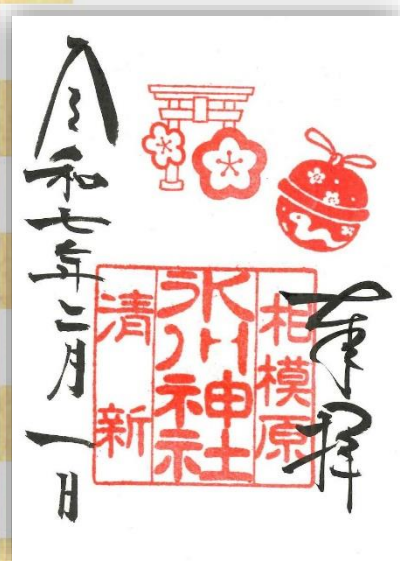 奉拝
相模原
氷川神社
清新
令和七年二月一日